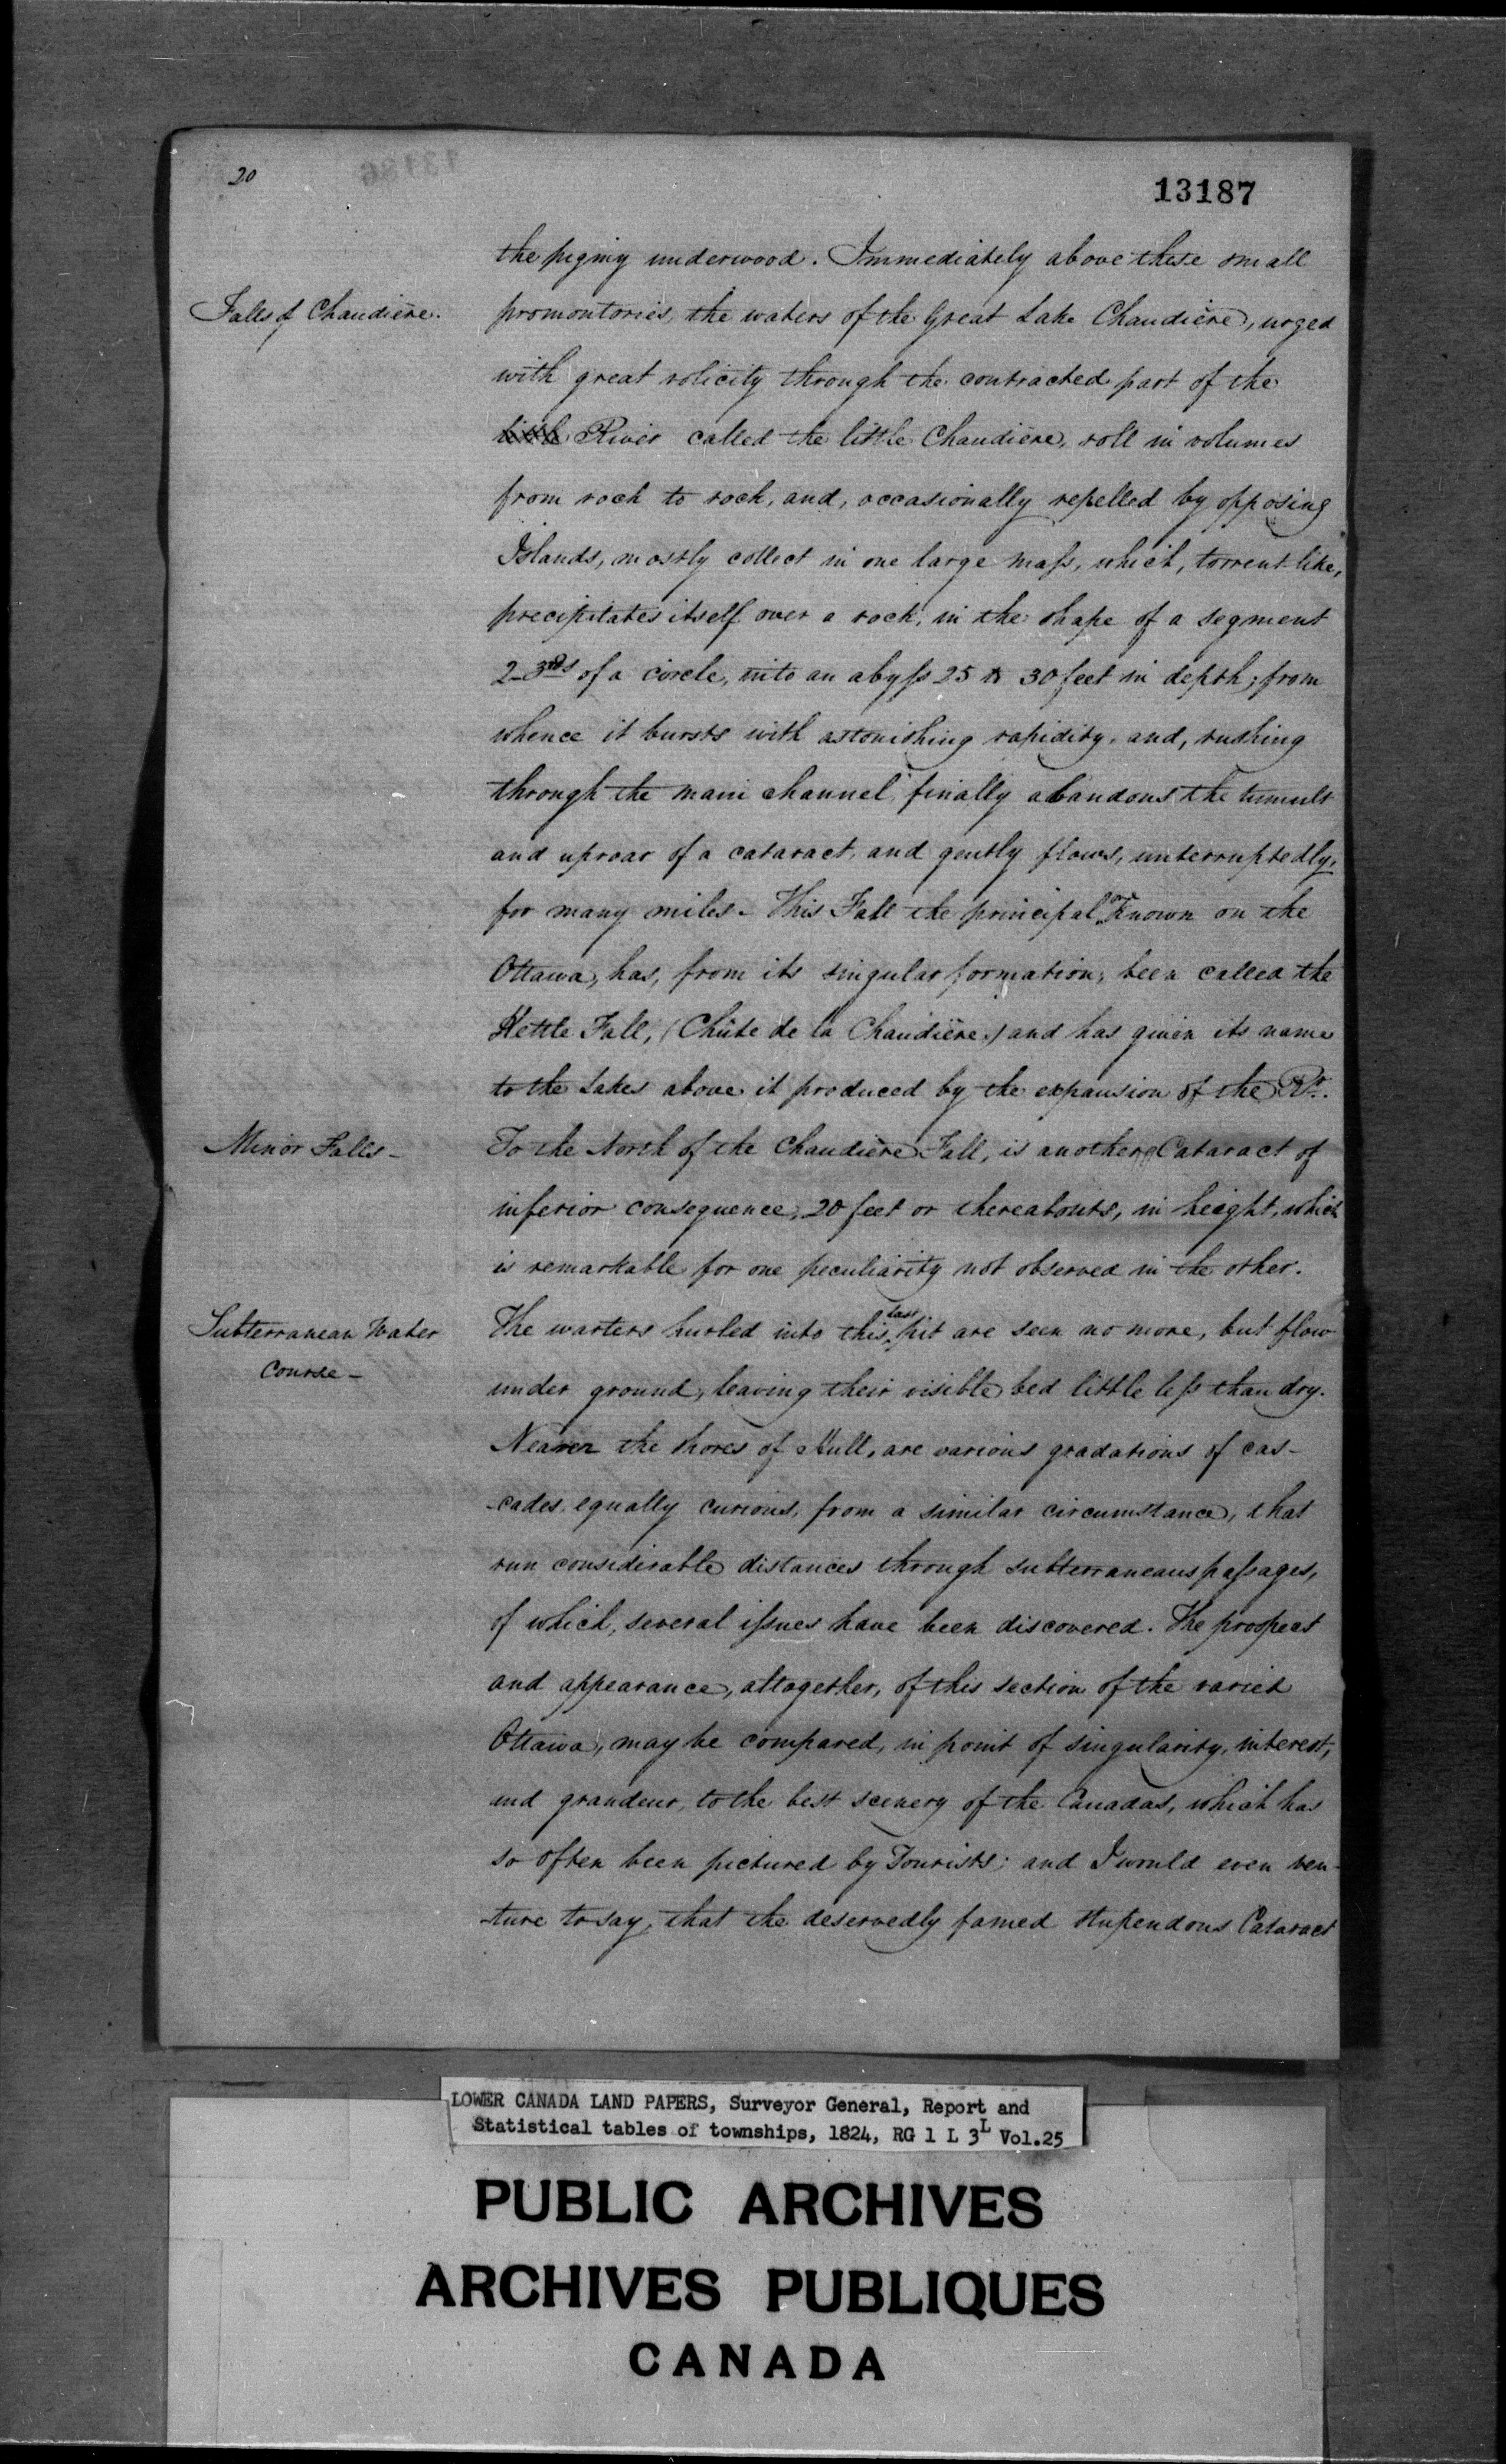 20
13187
the pigmy underwood. Immediately above these small
Falls of Chaudière.
promontories, the waters of the Great Lake Chaudière, urged
with great volicity through the contracted part of the
River called the little Chaudière, roll in volumes
from rock to rock, and, occasionally repelled by opposing
Islands, mostly collect in one large mass, which, torrent like,
precipitates itself over a rock, in the shape of a segment
2-3rds of a circle, into an abyss 25 to 30 feet in depth; from
whence it bursts with astonishing rapidity, and, rushing
through the main channel, finally abandons the tumult
and uproar of a cataract, and gently flows, unterruptedly,
for many miles - This Fall the principal one Known on the
Ottawa, has, from its singular formation, been called the
Kettle Fall, (Chûte de la Chaudière,) and has given its name
to the Lakes above it produced by the expansion of the Rr.
Minor Falls -
To the North of the Chaudière Fall, is another Cataract of
inferior consequence, 20 feet or thereabouts, in height, which
is remarkable for one peculiarity not observed in the other.
Subterranean Water
Course -
The warters hurled into this last pit are seen no more, but flow
under ground, leaving their visible bed little less than dry.
Nearer the shores of Hull, are various gradations of cas-
-cades, equally curious, from a similar circumstance, that
run considerable distances through subterraneans passages,
of which, several issues have been discovered. The prospect
and appearance, altogether, of this section of the varied
Ottawa, may be compared, in point of singularity, interest,
and grandeur, to the best scenery of the Canadas, which has
so often been pictured by Tourists; and I would even ven-
-ture to say, that the deservedly famed stupendous Cataract
LOWER CANADA LAND PAPERS, Surveyor General, Report and
Statistical tables of townships, 1824, RG 1 L 3L Vol.25
PUBLIC ARCHIVES
ARCHIVES PUBLIQUES
CANADA